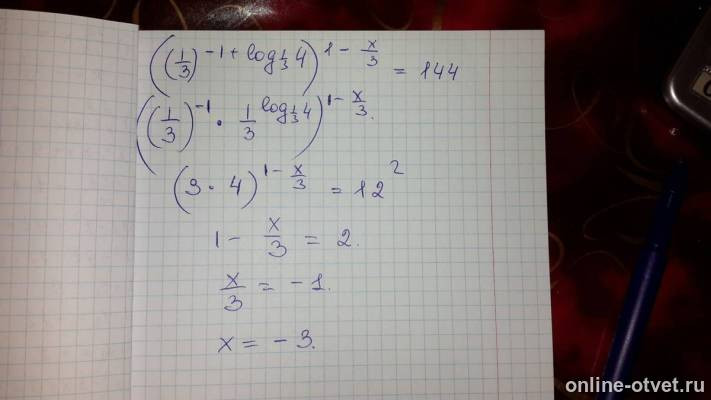 ((1/3)^(-1 + log_(1/3) 4))^(1 - x/3) = 144
((1/3)^(-1) · 1/3^(log_(1/3) 4))^(1 - x/3).
(3 · 4)^(1 - x/3) = 12^2
1 - x/3 = 2.
x/3 = -1.
x = -3.
online-otvet.ru